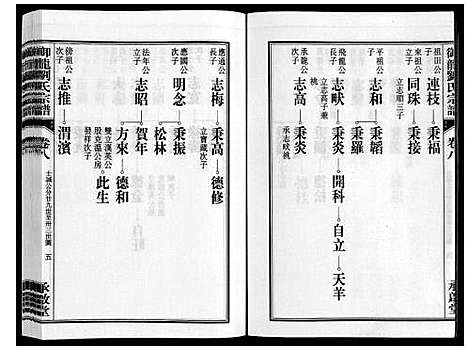 御龍劉氏宗譜 卷八
承啟堂
祖田公
子
連枝 秉福
東祖公
次子
同珠 秉接
立志順三子
平祖公
次子
志和 秉韜
秉羅
飛龍公
長子
志畎 秉炎 開科 自立 天羊
立志高子秉
桃
承龍公
次子
志高 秉炎
承志畎桃
應通公
長子
志梅 秉高 德修
立寶藏次子
應國公
次子
明念 秉振
松林
法年公
立子
志昭 賀年
方來 德和
雙立漢英公
股克溫公房 此生
發祥次子
傍祖公
次子
志推 渭濱
御龍劉氏宗譜 卷八
士誠公分廿九世至卅三世圖 五
承啟堂